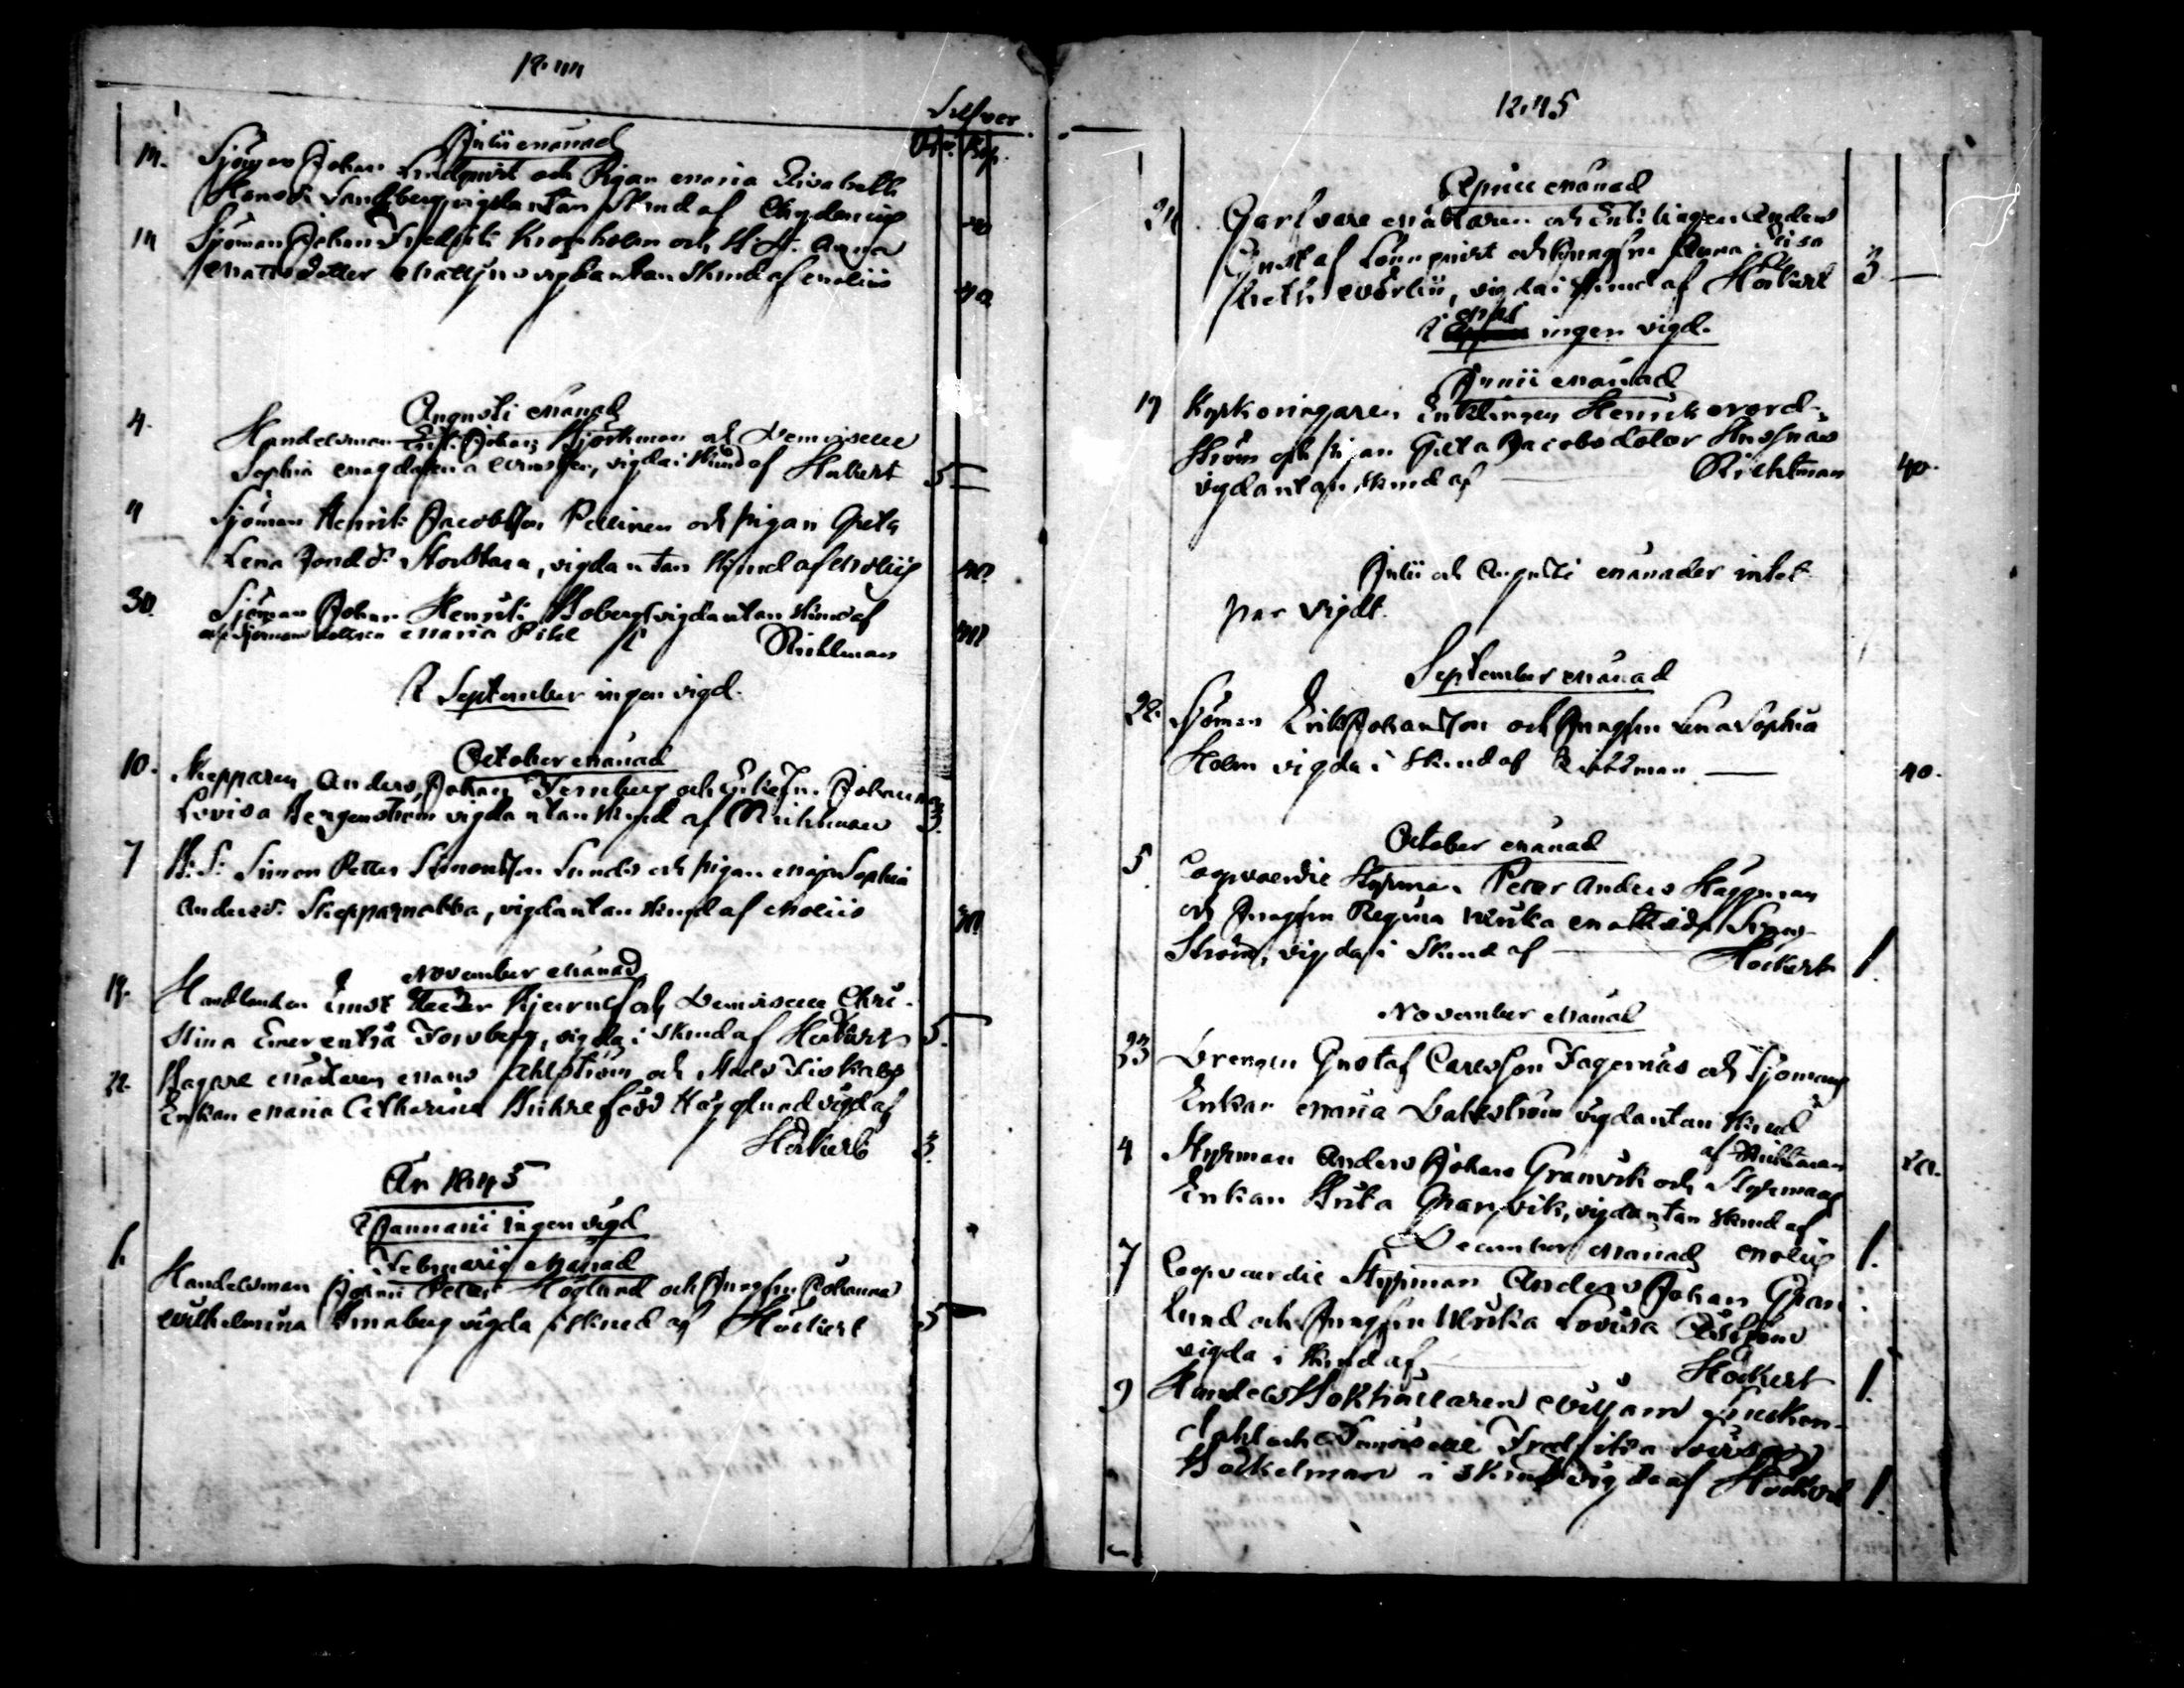 1844
Silfver
R. Kop.
Julii Månad
14. Sjöman Johan Lindqvist och Pigan Maria Elisabeth
Hansd. Sandberg vigda utan Skrud af Chydenius
14 Sjöman Johan Fredrik Kronholm och Anna
Matts dotter Mattjus vigda utan Skrud af Moliis 40
Augusti Månad
4. Handelsman Enkl. Johan Björkman och Demoiselle
Sophia Magdalena, vigda i Skrud af Höckert 5
4 Sjöman Henrik Jacobsson Pellinen och Pigan Greta
Lena Jonsd. Storstara, vigda utan Skrud af Moliis 40
30. Sjöman Johan Henrik Boberg vigda utan Skrud af
och Sjömans dottren Maria Pihl Richtman 40
I September ingen vigd.
October Månad
10. Skepparen Anders Johan Fernberg och Enkefru Johanna
Lovisa Bergenström vigda utan Skrud af Richtman 3.
7 B. S. Simon Petter Simonsson Sunds och Pigan Maja Sophia
Andersd. Skepparnabba, vigda utan Skrud af Moliis 40
November Månad
19. Handlanden Ernst Reeder Bjerulf och Demoiselle Chri-
stina Emerentia Forsberg, vigda i Skrud af Höckert 5.
22. Bagare Mästaren Mans Ahlström och Stads Fiskals
Enkan Maria Catharina Buhre född Hägglund vigd af
Höckert 3.
År 1845
I Januarii ingen vigd
Februarii Månad
1. Handelsman Johan Peter Höglund och Jungfru Johanna
Wilhelmina Srnaberg vigda i Skrud af Höckert 5
1845
April Månad
24 Garfvare Mästaren och Enklingen Anders
Gustaf Lönnqvist och Jungfru Anna Lisa
beth Worlin, vigda i Skrud af Höckert 3
I Maj ingen vigd.
Junii Månad
17 Kyrkoringaren Enklingen Henrik Nord-
ström och Pigan Greta Jacobsdoter Knosnäs
vigda utan Skrud af Richtman 40.
Julii och Augusti Månader intet
par vigdt.
September Månad
28. Sjöman Erik Johansson och Jungfru Lena Sophia
Holm vigda i Skrud af Richtman 40.
October Månad
5. Coopvaerdie Styrman Peter Anders Häggman
och Jungfru Regina Ulrika
Ström, vigda i Skrud af Höckert 1.
November Månad
23 Drengen Gustaf Carlsson Fagernäs och Sjömans
Enkan Maria Dahlström vigda utan Skrud
af Richtman
4 Styrman Anders Johan Granvik och Styrmans
Enkan Brita Granvik, vigda utan Skrud af
Moliis 1.
December Månad
7 Coopvaerdie Styrman Anders Johan Gran
lund och Jungfru Ulrika Lovisa
vigda i Skrud af Höckert 1.
9 Handels Bokhållaren Wiljam
dahl och Demoiselle Fredrika Lovisa
Böckelman i Skrud vigda af Höckert 1.